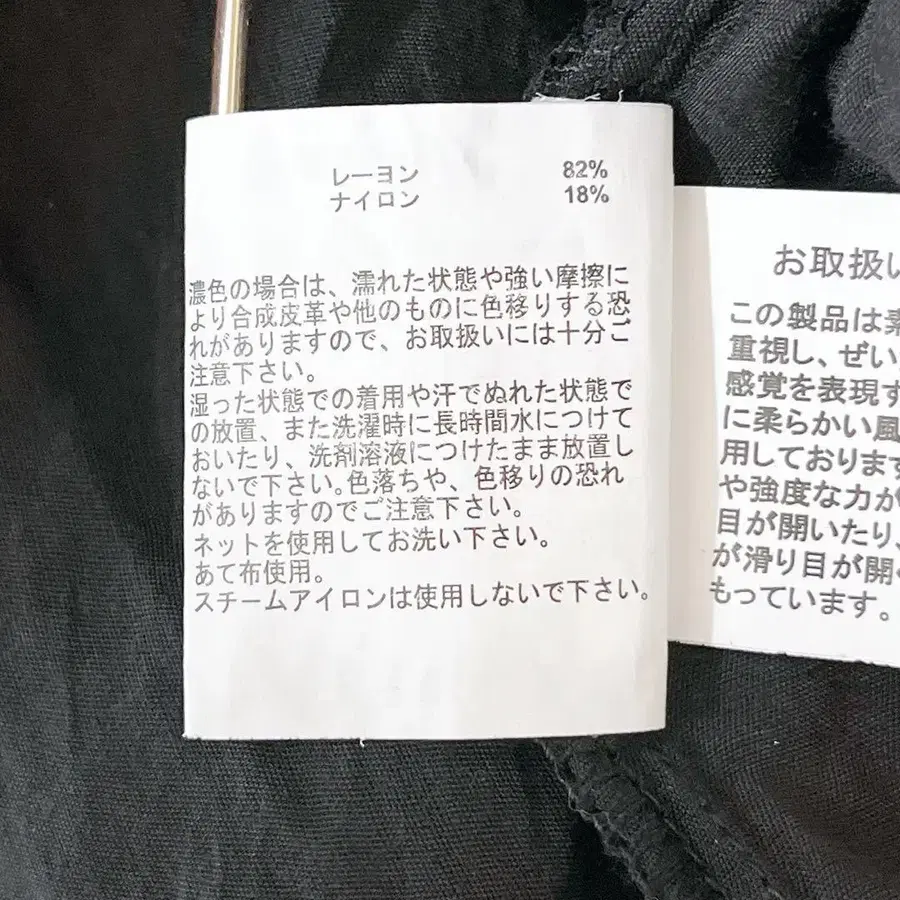 レーヨン 82%
ナイロン 18%
濃色の場合は、濡れた状態や強い摩擦に
より合成皮革や他のものに色移りする恐
れがありますので、お取扱いには十分ご
注意下さい。
湿った状態での着用や汗でぬれた状態で
の放置、また洗濯時に長時間水につけて
おいたり、洗剤溶液につけたまま放置し
ないで下さい。色落ちや、色移りの恐れ
がありますのでご注意下さい。
ネットを使用してお洗い下さい。
あて布使用。
スチームアイロンは使用しないで下さい。
お取扱い
この製品は素
重視し、ぜい
感覚を表現す
に柔らかい風
用しております
や強度な力が
目が開いたり、
が滑り目が開く
もっています。